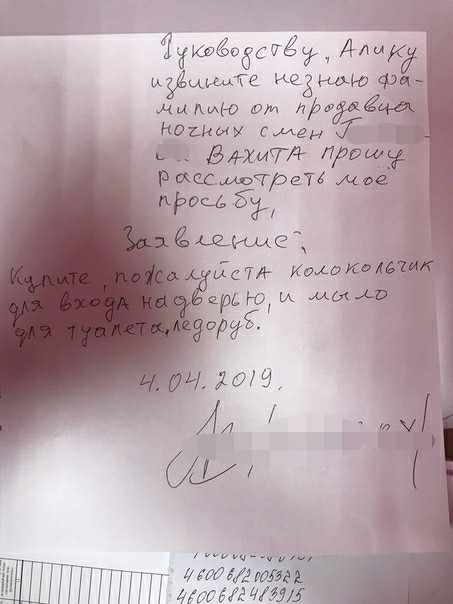 Руководству, Алику
извините незнаю фа-
милию от продавца
ночных смен Г
Вахита прошу
рассмотреть моё
просьбу,
Заявление.
Купите, пожалуйста колокольчик
для входа надверью, и мыло
для туалета, ледоруб.
4.04.2019.
4600682005322
4600682483915